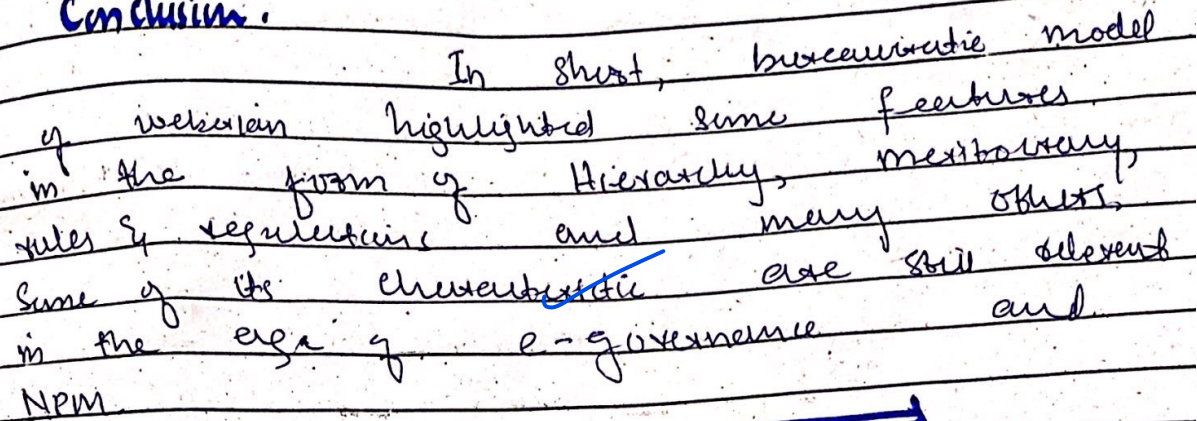 Conclusion.
In short, bureaucratic model
of weberian highlighted some features
in the form of Hierarchy, meritocracy,
rules & regulations and many others,
Some of its characteristic are still relevent
in the era of e-governance and
NPM.